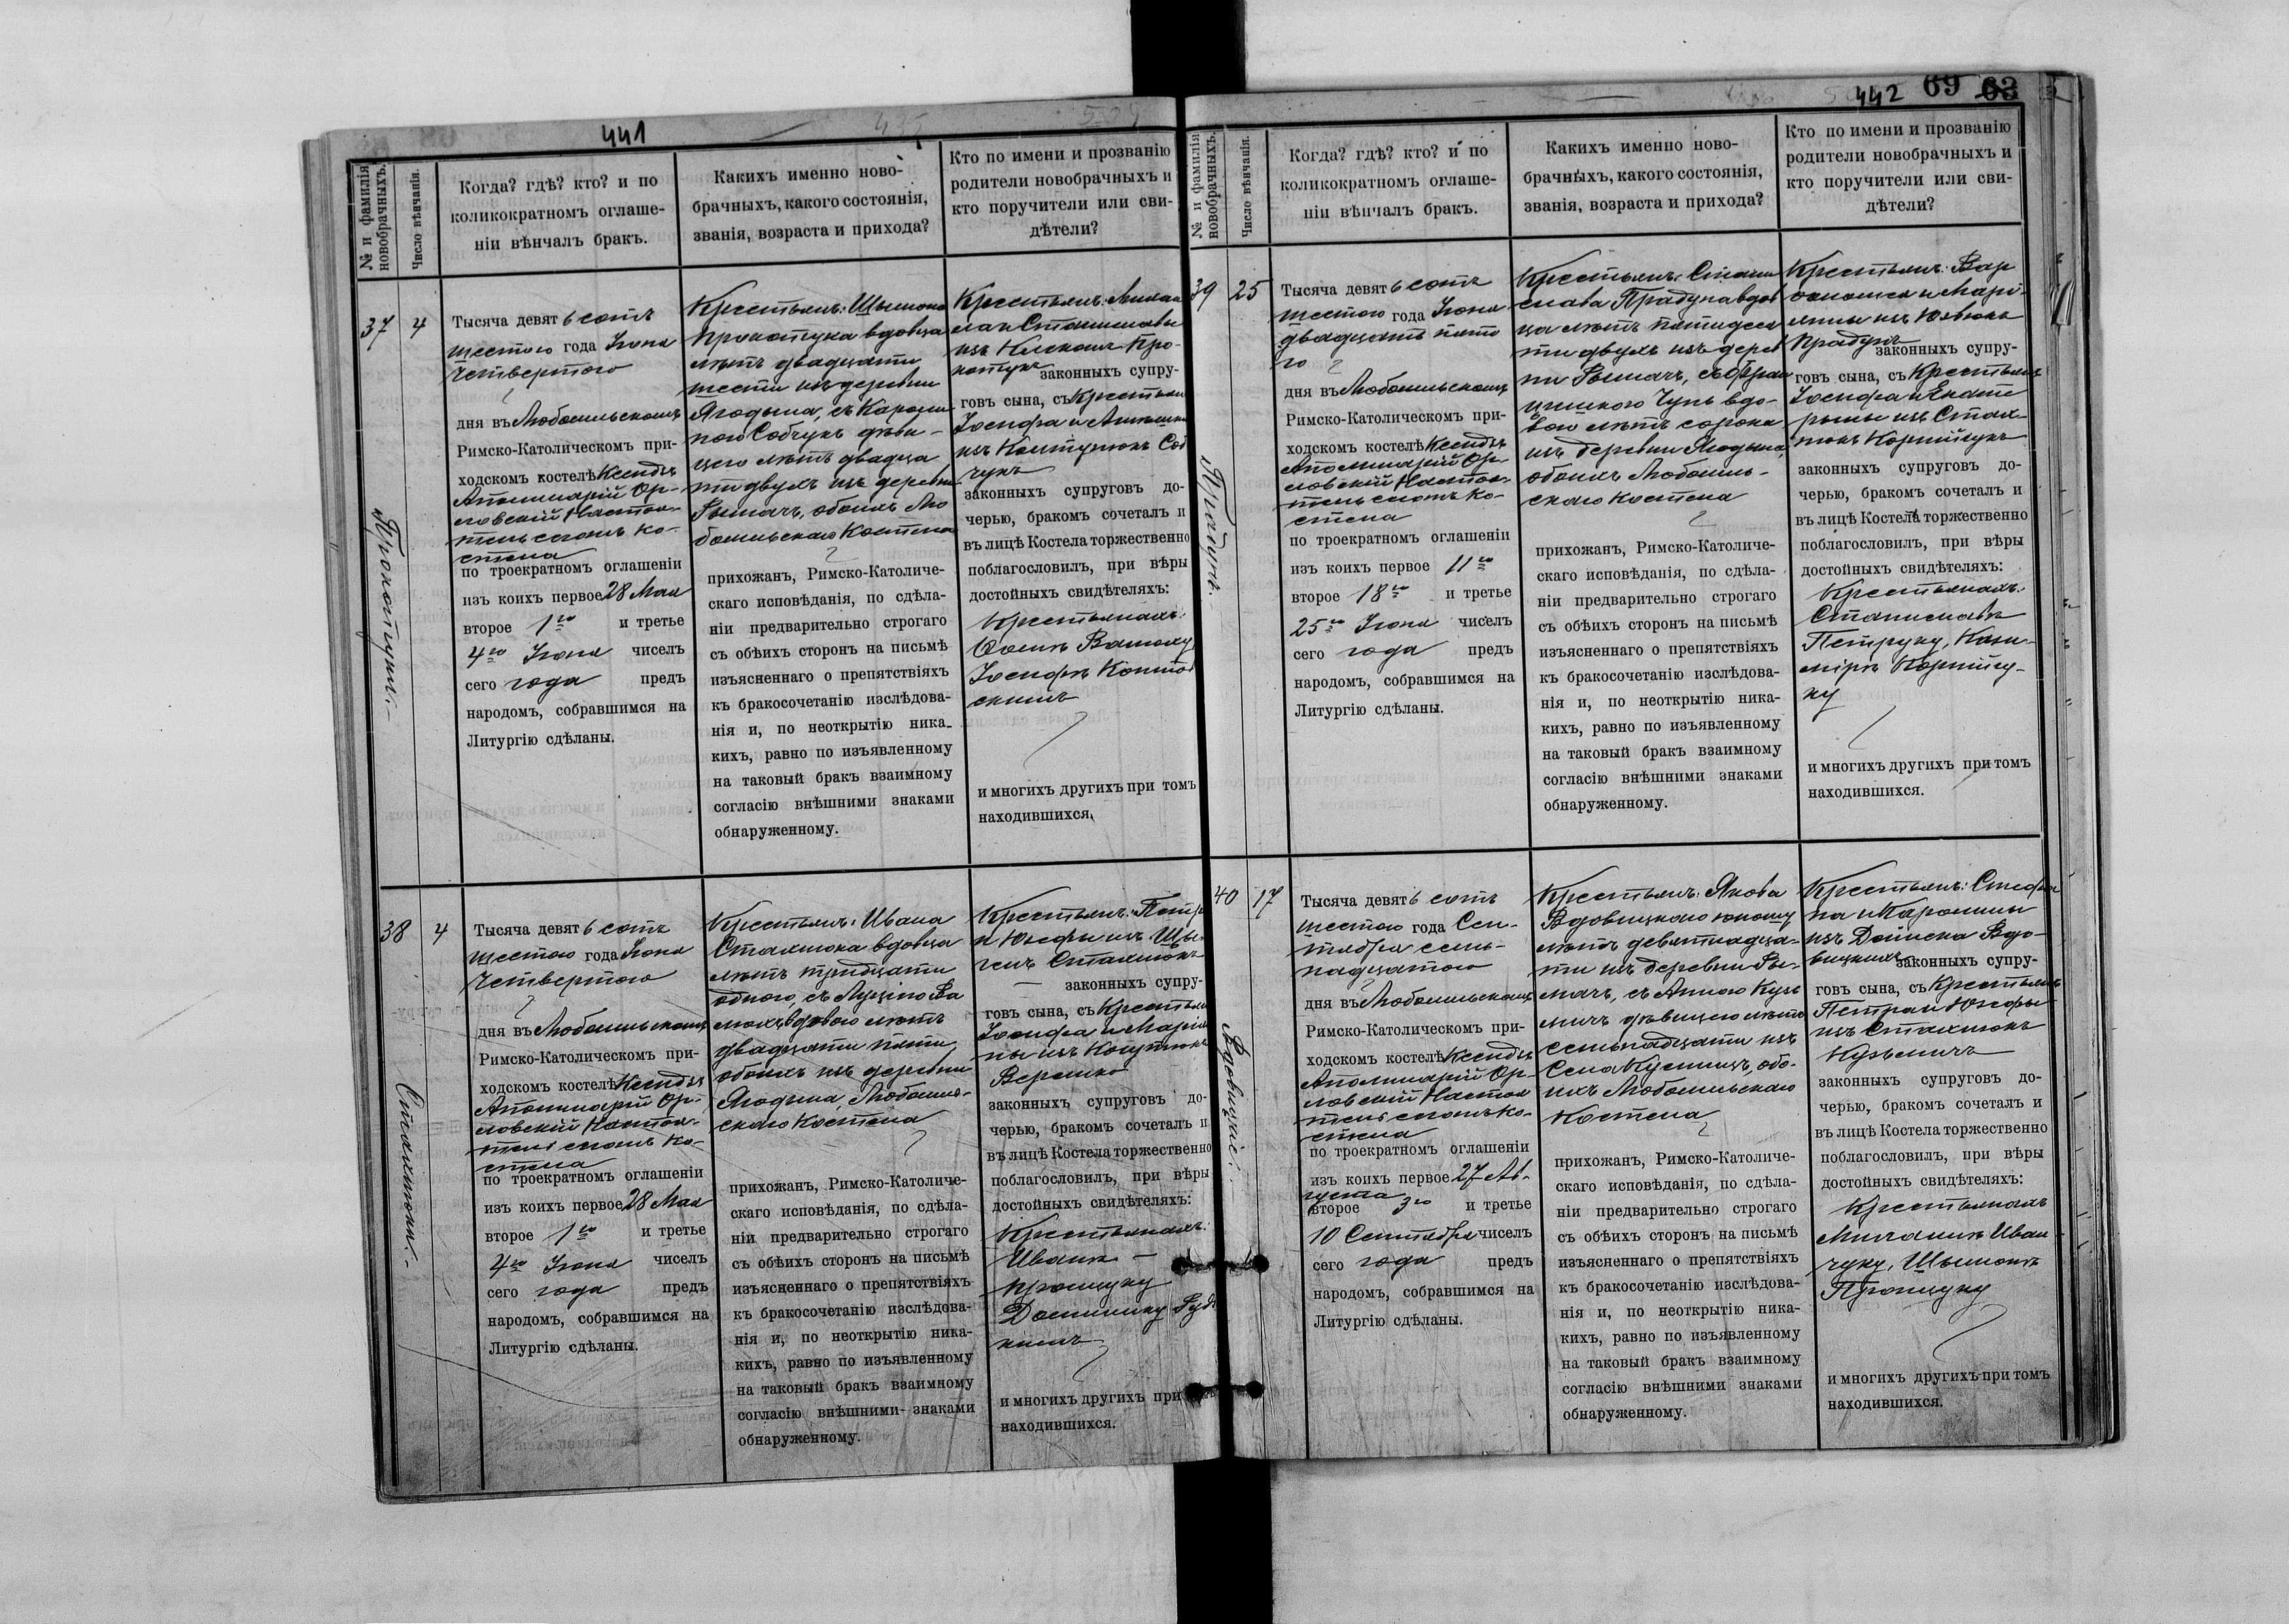 441
№ и фамилія
новобрачныхъ.
Число вѣнчанія.
Когда? гдѣ? кто? и по
коликократномъ оглаше-
ніи вѣнчалъ бракъ.
Какихъ именно ново-
брачныхъ, какого состоянія,
званія, возраста и прихода?
Кто по имени и прозванію
родители новобрачныхъ и
кто поручители или сви-
дѣтели?
37
4
Прокопуки.
Тысяча девятьсотъ
шестого года Іюня
Четвертого
дня въ Любомльскомъ
Римско-Католическомъ при-
ходскомъ костелѣ Ксендзъ
Аполинарій Ор-
ловскій Настоя-
тель сего ко-
стела
по троекратномъ оглашеніи
изъ коихъ первое 28 Мая
второе 1го и третье
4го Іюня чиселъ
сего года предъ
народомъ, собравшимся на
Литургію сдѣланы.
Крестьянъ: Шымона
Прокопука вдовца
лѣтъ двадцати
шести изъ деревни
Ягодына, съ Кароли-
ною Собчукъ дѣви-
цею лѣтъ двадца
ти двухъ изъ деревни
Рымачъ, обоихъ Лю
бомльскаго Костела
прихожанъ, Римско-Католиче-
скаго исповѣданія, по сдѣла-
ніи предварительно строгаго
съ обѣихъ сторонъ на письмѣ
изъясненнаго о препятствіяхъ
къ бракосочетанію изслѣдова-
нія и, по неоткрытію ника-
кихъ, равно по изъявленному
на таковый бракъ взаимному
согласію внѣшними знаками
обнаруженному.
Крестьянъ: Михаи
ла и Станиславы
изъ Про-
копукъ законныхъ супру-
говъ сына, съ Крестьян
Іосифа и
изъ Соб
чукъ
законныхъ супруговъ до-
черью, бракомъ сочеталъ и
въ лицѣ Костела торжественно
поблагословилъ, при вѣры
достойныхъ свидѣтеляхъ:
Крестьянахъ:
Іосифѣ
и многихъ другихъ при томъ
находившихся.
38
4
Стахнюки.
Тысяча девятьсотъ
шестого года Іюня
Четвертого
дня въ Любомльскомъ
Римско-Католическомъ при-
ходскомъ костелѣ Ксендзъ
Аполинарій Ор-
ловскій Настоя-
тель сего ко-
стела
по троекратномъ оглашеніи
изъ коихъ первое 28 Мая
второе 1го и третье
4го Іюня чиселъ
сего года предъ
народомъ, собравшимся на
Литургію сдѣланы.
Крестьянъ: Ивана
Стахнюка вдовца
лѣтъ тридцати
одного, съ Луціею
вдовою лѣтъ
двадцати пяти
обоихъ изъ деревни
Ягодына, Любомль-
скаго Костела
прихожанъ, Римско-Католиче-
скаго исповѣданія, по сдѣла-
ніи предварительно строгаго
съ обѣихъ сторонъ на письмѣ
изъясненнаго о препятствіяхъ
къ бракосочетанію изслѣдова-
нія и, по неоткрытію ника-
кихъ, равно по изъявленному
на таковый бракъ взаимному
согласію внѣшними знаками
обнаруженному.
Крестьянъ: Петра
и Юзефы изъ
Стахнюкъ
законныхъ супру-
говъ сына, съ Крестьян
Іосифа и Маріан
ны изъ
Верешко
законныхъ супруговъ до-
черью, бракомъ сочеталъ и
въ лицѣ Костела торжественно
поблагословилъ, при вѣры
достойныхъ свидѣтеляхъ:
Крестьянахъ:
Иванѣ
Прощуку
Доминику
и многихъ другихъ при
находившихся.
442 69 63
№ и фамилія
новобрачныхъ.
Число вѣнчанія.
Когда? гдѣ? кто? и по
коликократномъ оглаше-
ніи вѣнчалъ бракъ.
Какихъ именно ново-
брачныхъ, какого состоянія,
званія, возраста и прихода?
Кто по имени и прозванію
родители новобрачныхъ и
кто поручители или сви-
дѣтели?
39
25
Прадунъ.
Тысяча девятьсотъ
шестого года Іюня
двадцать пято
го
дня въ Любомльскомъ
Римско-Католическомъ при-
ходскомъ костелѣ Ксендзъ
Аполинарій Ор-
ловскій Настоя-
тель сего ко-
стела
по троекратномъ оглашеніи
изъ коихъ первое 11го
второе 18го и третье
25го Іюня чиселъ
сего года предъ
народомъ, собравшимся на
Литургію сдѣланы.
Крестьянъ: Стани
слава Прадуна вдов
ца лѣтъ пятидеся
ти двухъ изъ дерев
ни Рымачъ, съ Фран
цишкою вдо-
вою лѣтъ сорока
изъ деревни Ягодына,
обоихъ Любомль-
скаго Костела
прихожанъ, Римско-Католиче-
скаго исповѣданія, по сдѣла-
ніи предварительно строгаго
съ обѣихъ сторонъ на письмѣ
изъясненнаго о препятствіяхъ
къ бракосочетанію изслѣдова-
нія и, по неоткрытію ника-
кихъ, равно по изъявленному
на таковый бракъ взаимному
согласію внѣшними знаками
обнаруженному.
Крестьянъ: Вар
ѳоломея и Марі-
анны изъ
Прадунъ законныхъ супру-
говъ сына, съ Крестьянъ
Іосифа и Екате
рыны изъ Стах-
нюкъ Корнійчукъ
законныхъ супруговъ до-
черью, бракомъ сочеталъ и
въ лицѣ Костела торжественно
поблагословилъ, при вѣры
достойныхъ свидѣтеляхъ:
Крестьянахъ:
Станиславѣ
Петруку, Кази-
мірѣ Корнійчу-
ку
и многихъ другихъ при томъ
находившихся.
40
17
Вдовицкіе.
Тысяча девятьсотъ
шестого года Сен-
тября семь-
надцатого
дня въ Любомльскомъ
Римско-Католическомъ при-
ходскомъ костелѣ Ксендзъ
Аполинарій Ор-
ловскій Настоя
тель сего ко-
стела
по троекратномъ оглашеніи
изъ коихъ первое 27 Ав-
густа
второе 3го и третье
10 Сентября чиселъ
сего года предъ
народомъ, собравшимся на
Литургію сдѣланы.
Крестьянъ: Якова
Вдовицкаго юношу
лѣтъ девятнадца-
ти изъ деревни Ры-
мачъ, съ Анною Кузь
мичъ дѣвицею лѣтъ
семьнадцати изъ
Села Куснищъ, обо-
ихъ Любомльскаго
Костела
прихожанъ, Римско-Католиче-
скаго исповѣданія, по сдѣла-
ніи предварительно строгаго
съ обѣихъ сторонъ на письмѣ
изъясненнаго о препятствіяхъ
къ бракосочетанію изслѣдова-
нія и, по неоткрытію ника-
кихъ, равно по изъявленному
на таковый бракъ взаимному
согласію внѣшними знаками
обнаруженному.
Крестьянъ: Стефа
на и Каролины
изъ Вдо-
вицкихъ законныхъ супру-
говъ сына, съ Крестьянъ
Петра и Юзефы
изъ Стахнюкъ
Кузьмичъ
законныхъ супруговъ до-
черью, бракомъ сочеталъ и
въ лицѣ Костела торжественно
поблагословилъ, при вѣры
достойныхъ свидѣтеляхъ:
Крестьянахъ
Михаилѣ Иван
чуку, Шымонѣ
Прощуку
и многихъ другихъ при томъ
находившихся.